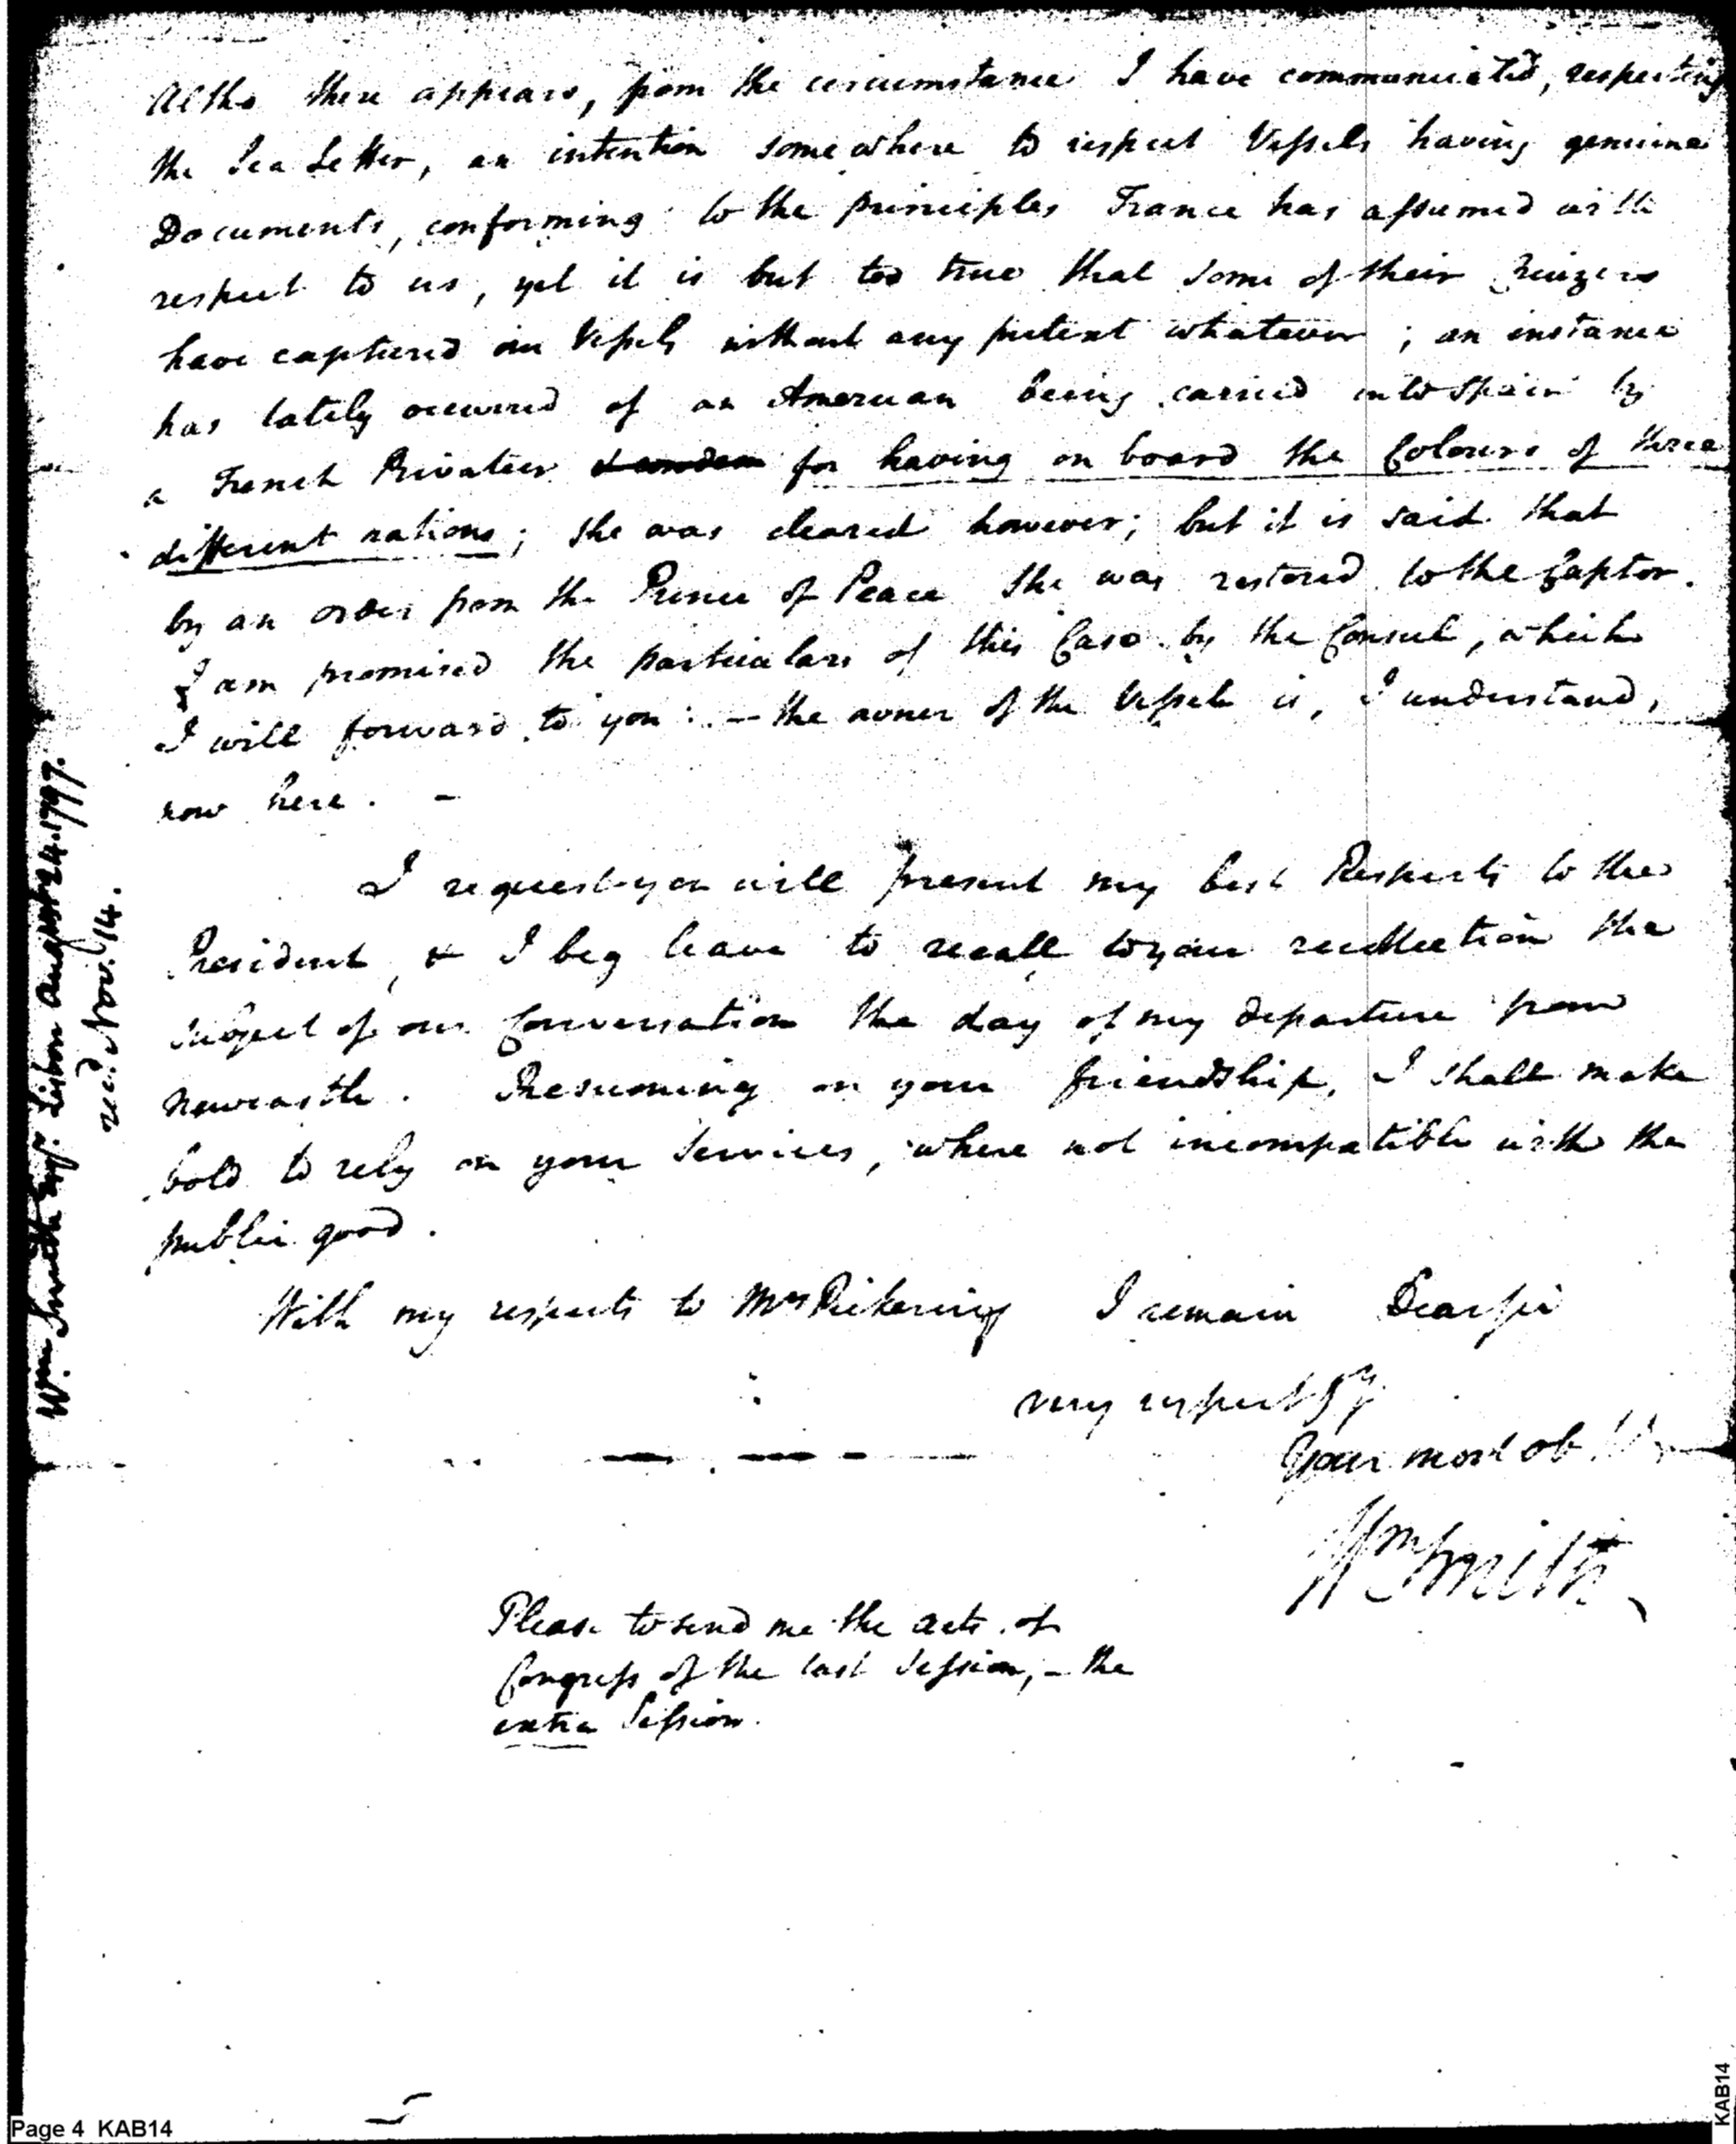 Altho there appears, from the circumstance I have communicated, respecting
the Sea Letter, an intention somewhere to respect Vessels having genuine
Documents, conforming to the principles France has assumed with
respect to us, yet it is but too true that some of their Cruizers
have captured our Vessels without any pretext whatever; an instance
has lately occurred of an American being carried into Spain by
a French Privateer for having on board the Colours of three
different nations; she was cleared however; but it is said that
by an order from the Prince of Peace she was restored to the Captor.
I am promised the particulars of this Case by the Consul, which
I will forward to you: — the owner of the Vessel is, I understand,
now here. —
I request you will present my best Respects to the
President, & I beg leave to recall to your recollection the
subject of our Conversation the day of my departure from
Newcastle. Presuming on your friendship, I shall make
bold to rely on your Services, where not incompatible with the
public good.
With my respects to Mrs Pickering I remain Dear sir
very respectfy
Your most ob.
Wm Smith
Please to send me the acts of
Congress of the last Session, – the
extra Session.
Wm Smith Esqr. Lisbon August 24. 1797.
recd. Nov. 14.
Page 4 KAB14
KAB14